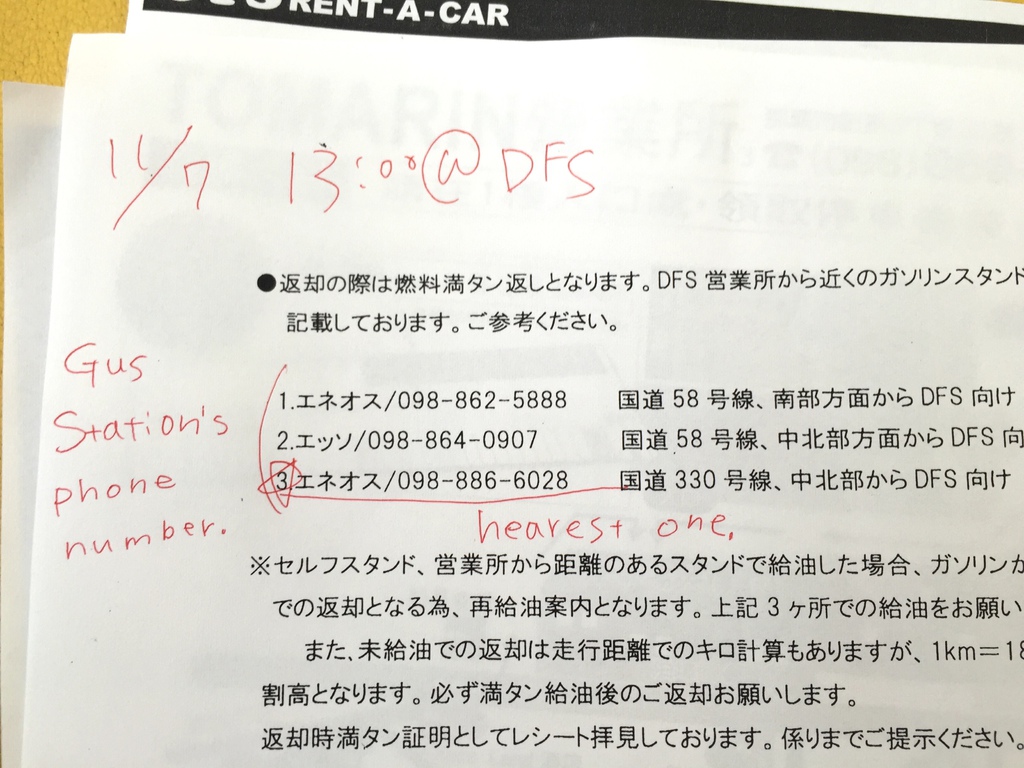 RENT-A-CAR
TOMARIN営業所
11/7 13:00@DFS
●返却の際は燃料満タン返しとなります。DFS 営業所から近くのガソリンスタンド
記載しております。ご参考ください。
Gus
Station's
phone
number.
1.エネオス/098-862-5888 国道 58 号線、南部方面から DFS 向け
2.エッソ/098-864-0907 国道 58 号線、中北部方面から DFS 向
3.エネオス/098-886-6028 国道 330 号線、中北部から DFS 向け
nearest one.
※セルフスタンド、営業所から距離のあるスタンドで給油した場合、ガソリンが
での返却となる為、再給油案内となります。上記 3 ヶ所での給油をお願い
また、未給油での返却は走行距離でのキロ計算もありますが、1km=18
割高となります。必ず満タン給油後のご返却お願いします。
返却時満タン証明としてレシート拝見しております。係りまでご提示ください。